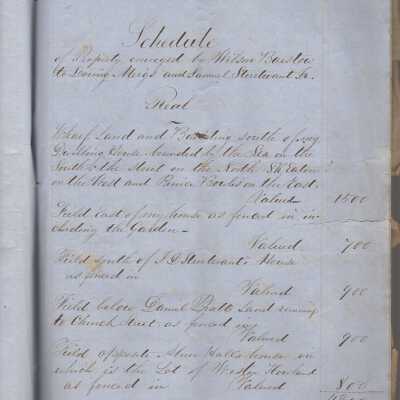 Schedule
of Property conveyed by Wilson Barstow
to Loring Meigs and Samuel Sturtevant Jr.
Real
Wharf Land and Building south of my
Dwelling House bounded by the Sea on the
South & the street on the North S.K. Eaton
on the West and Prince Bowles on the East.
Valued 1500
Field east of my house as fenced in in-
cluding the Garden —
Valued 700
Field south of J.D. Sturtevants House
as fenced in
Valued 900
Field below Daniel Pratts Land running
to Church Street as fenced in
Valued 900
Field opposite Halls house on
which is the Lot of Wesley Howland
as fenced in Valued 800